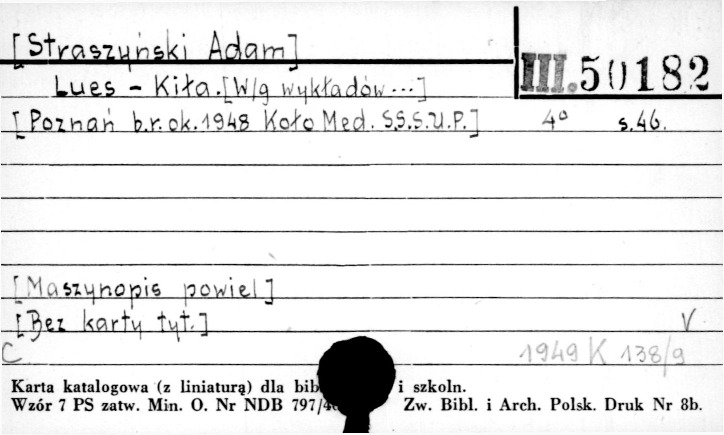 [Straszyński Adam]
III.50182
Lues - Kiła.[W/g wykładów...]
[Poznań b.r.ok.1948 Koło Med. S.S.S.U.P.] 4° s.46.
[Maszynopis powiel]
[Bez karty tyt.] V
C 1949 K 138/9
Karta katalogowa (z liniaturą) dla i szkoln.
Wzór 7 PS zatw. Min. O. Nr NDB Zw. Bibl. i Arch. Polsk. Druk Nr 8b.